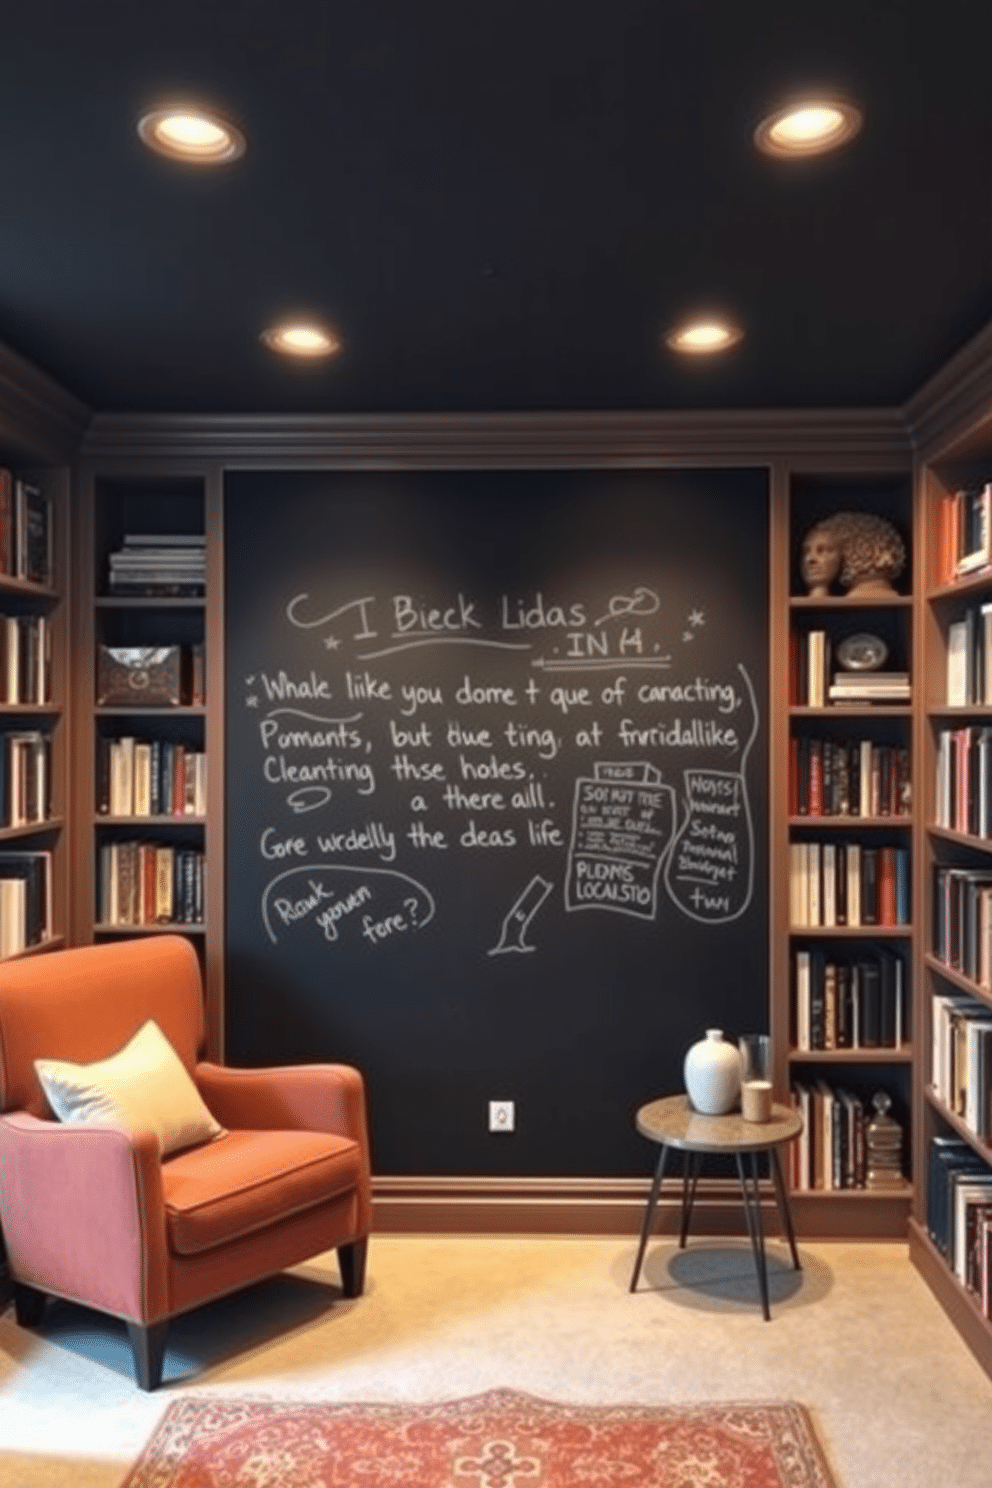 I Bieck Lidas
. IN H .
Whale like you dome t que of canacting,
Pomants, but tlue ting, at fnridallike
Cleanting thse holes..
a there aill.
Gore wrdelly the deas life
SOT MIT THE
PLDMS
LOCALSTO
twy
Rouk
yowen
fore?